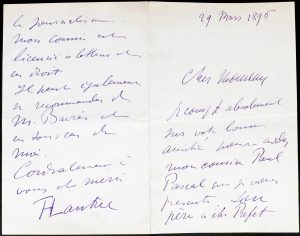 29 Mars 1896
Cher Monsieur
je compte absolument
sur votre bonne
amitié pour aider
mon cousin Paul
Pascal que je vous
présente. Son
père a été Préfet
le Journalisme
nous comme
licencié ès lettres et
en droit.
Il peut également
se recommander de
M. Barrès et
en tous cas de
moi.
Cordialement à
vous et merci